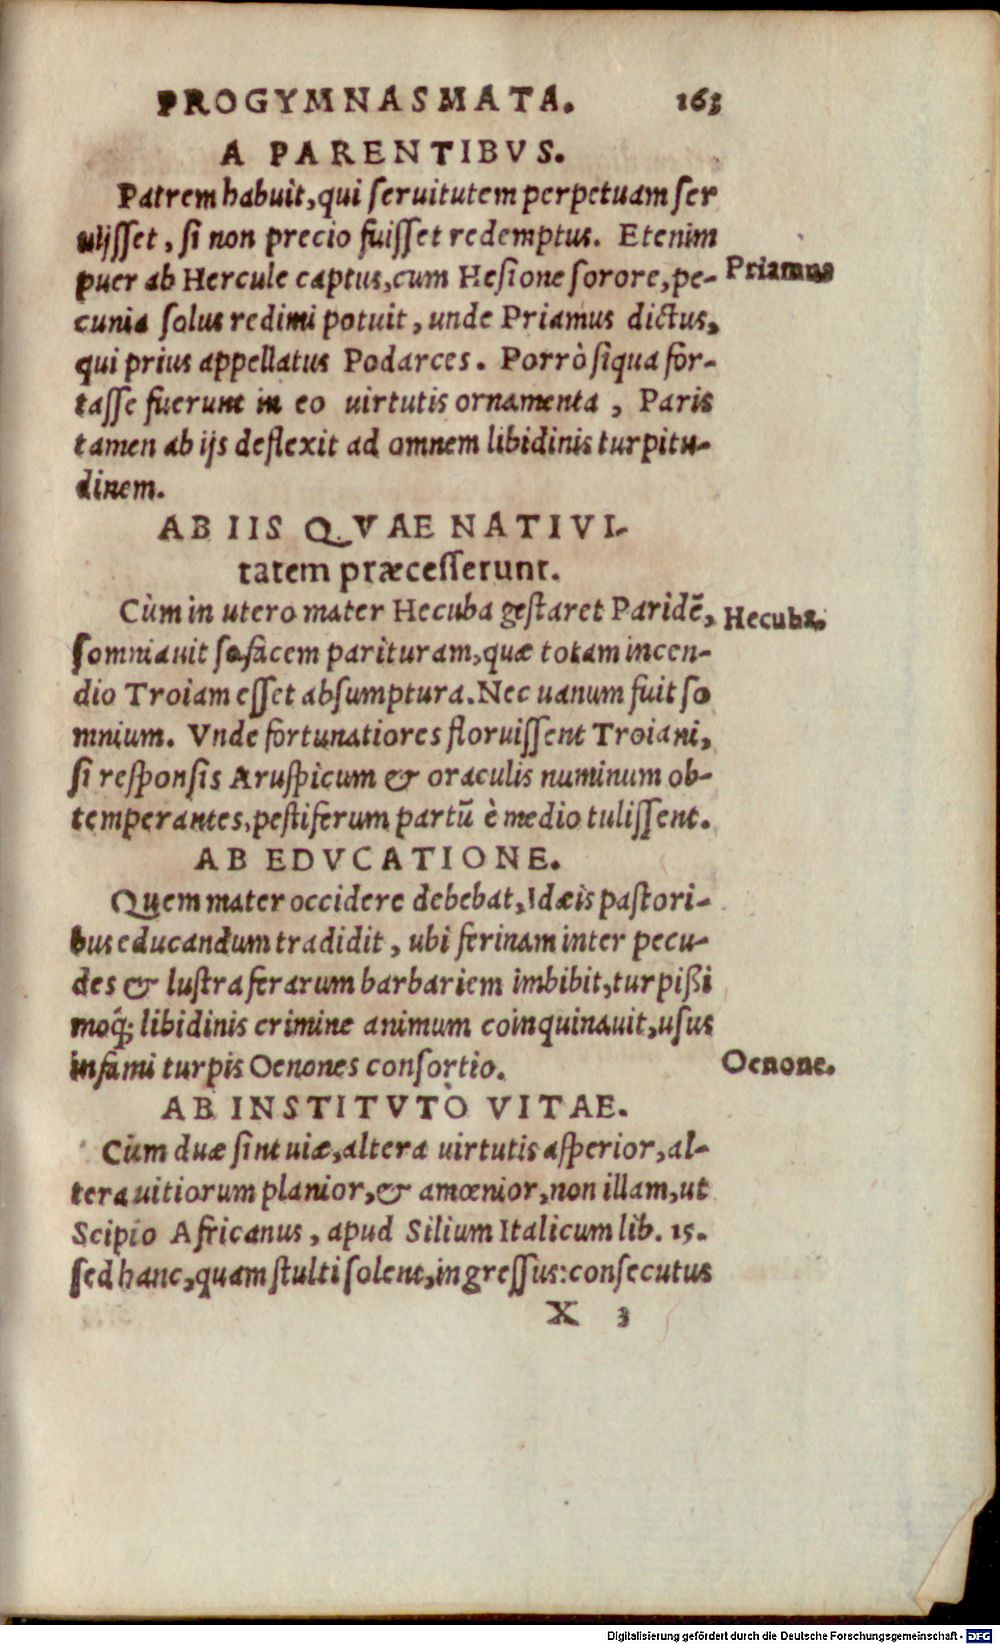 PROGYMNASMATA. 163
A PARENTIBVS.
Patrem habuit, qui seruitutem perpetuam ser
uijsset, si non precio fuisset redemptus. Etenim
puer ab Hercule captus, cum Hesione sorore, pe- Priamus
cunia solus redimi potuit, unde Priamus dictus,
qui prius appellatus Podarces. Porrò siqua for-
tasse fuerunt in eo uirtutis ornamenta, Paris
tamen ab ijs deflexit ad omnem libidinis turpitu-
dinem.
AB IIS QVAE NATIVI-
tatem præcesserunt.
Cùm in utero mater Hecuba gestaret Paridẽ, Hecuba.
somniauit se facem parituram, quæ totam incen-
dio Troiam esset absumptura. Nec uanum fuit so
mnium. Vnde fortunatiores floruissent Troiani,
si responsis Aruspicum & oraculis numinum ob-
temperantes, pestiferum partũ è medio tulissent.
AB EDVCATIONE.
Quem mater occidere debebat, Idæis pastori-
bus educandum tradidit, ubi ferinam inter pecu-
des & lustra ferarum barbariem imbibit, turpißi
moq́; libidinis crimine animum coinquinauit, usus
infami turpis Oenones consortio. Oenone.
AB INSTITVTO VITAE.
Cùm duæ sint uiæ, altera uirtutis asperior, al-
tera uitiorum planior, & amœnior, non illam, ut
Scipio Africanus, apud Silium Italicum lib. 15.
sed hanc, quam stulti solent, ingressus: consecutus
X 3
Digitalisierung gefördert durch die Deutsche Forschungsgemeinschaft - DFG